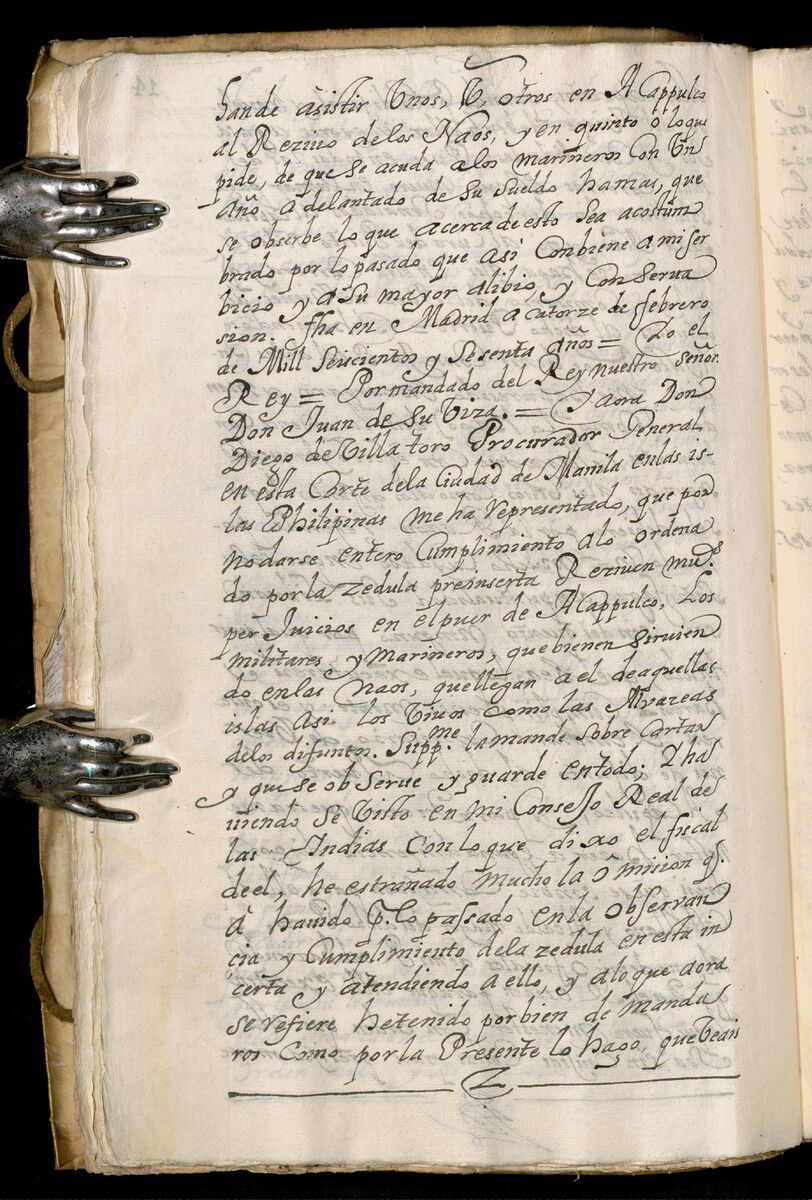 han de asistir Vnos, V, otros en Acappulco
al Reziuo delos Naos, y en quinto ô lo que
pide, de que se acuda alos marineros con Vn
Año adelantado de su sueldo hamas, que
se obserbe lo que acerca de esto sea acostum
brado por lo pasado que asi combiene a mi ser
bicio y a su mayor alibio, y conserua
sion. fha en Madrid a catorze de febrero
de Mill Seiscientos y Sesenta años = Yo el
Rey = Por mandado del Rey nuestro señor.
Don Juan de Subiza. = Y aora Don
Diego de Villa toro Procurador General
en esta Corte dela Ciudad de Manila enlas is-
las Philipinas me ha representado, que por
no darse entero Cumplimiento alo ordena
do por la zedula preinserta Reziuen mu.s
per Juicios en el puer de Acappulco, Los
militares, y Marineros, que bienen siruien
do enlas Naos, que llegan a el de aquellas
islas asi los Viuos como las Alvazeas
delos difuntos. Supp.me la mande sobre Cartar
y que se obserue y guarde en todo; Y ha
uiendo se Visto en mi Consejo Real de
las Indias con lo que dixo el fiscal
de el, he estrañado mucho la ômision q.
â hauido p. lo passado en la observan
cia y Cumplimiento dela zedula en esta in
certa y atendiendo a ello, y alo que aora
se refiere he tenido por bien de manda
ros Como por la Presente lo hago, que Veais